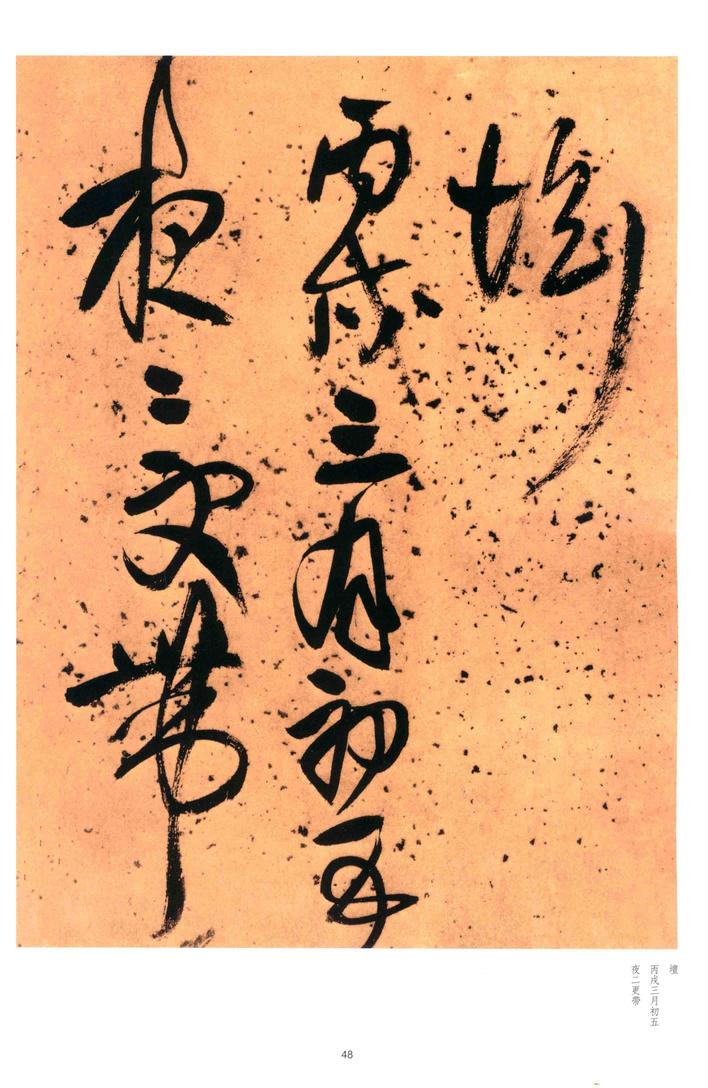 壇
丙戌三月初五
夜二更帶
壇
丙戌三月初五
夜二更帶
48